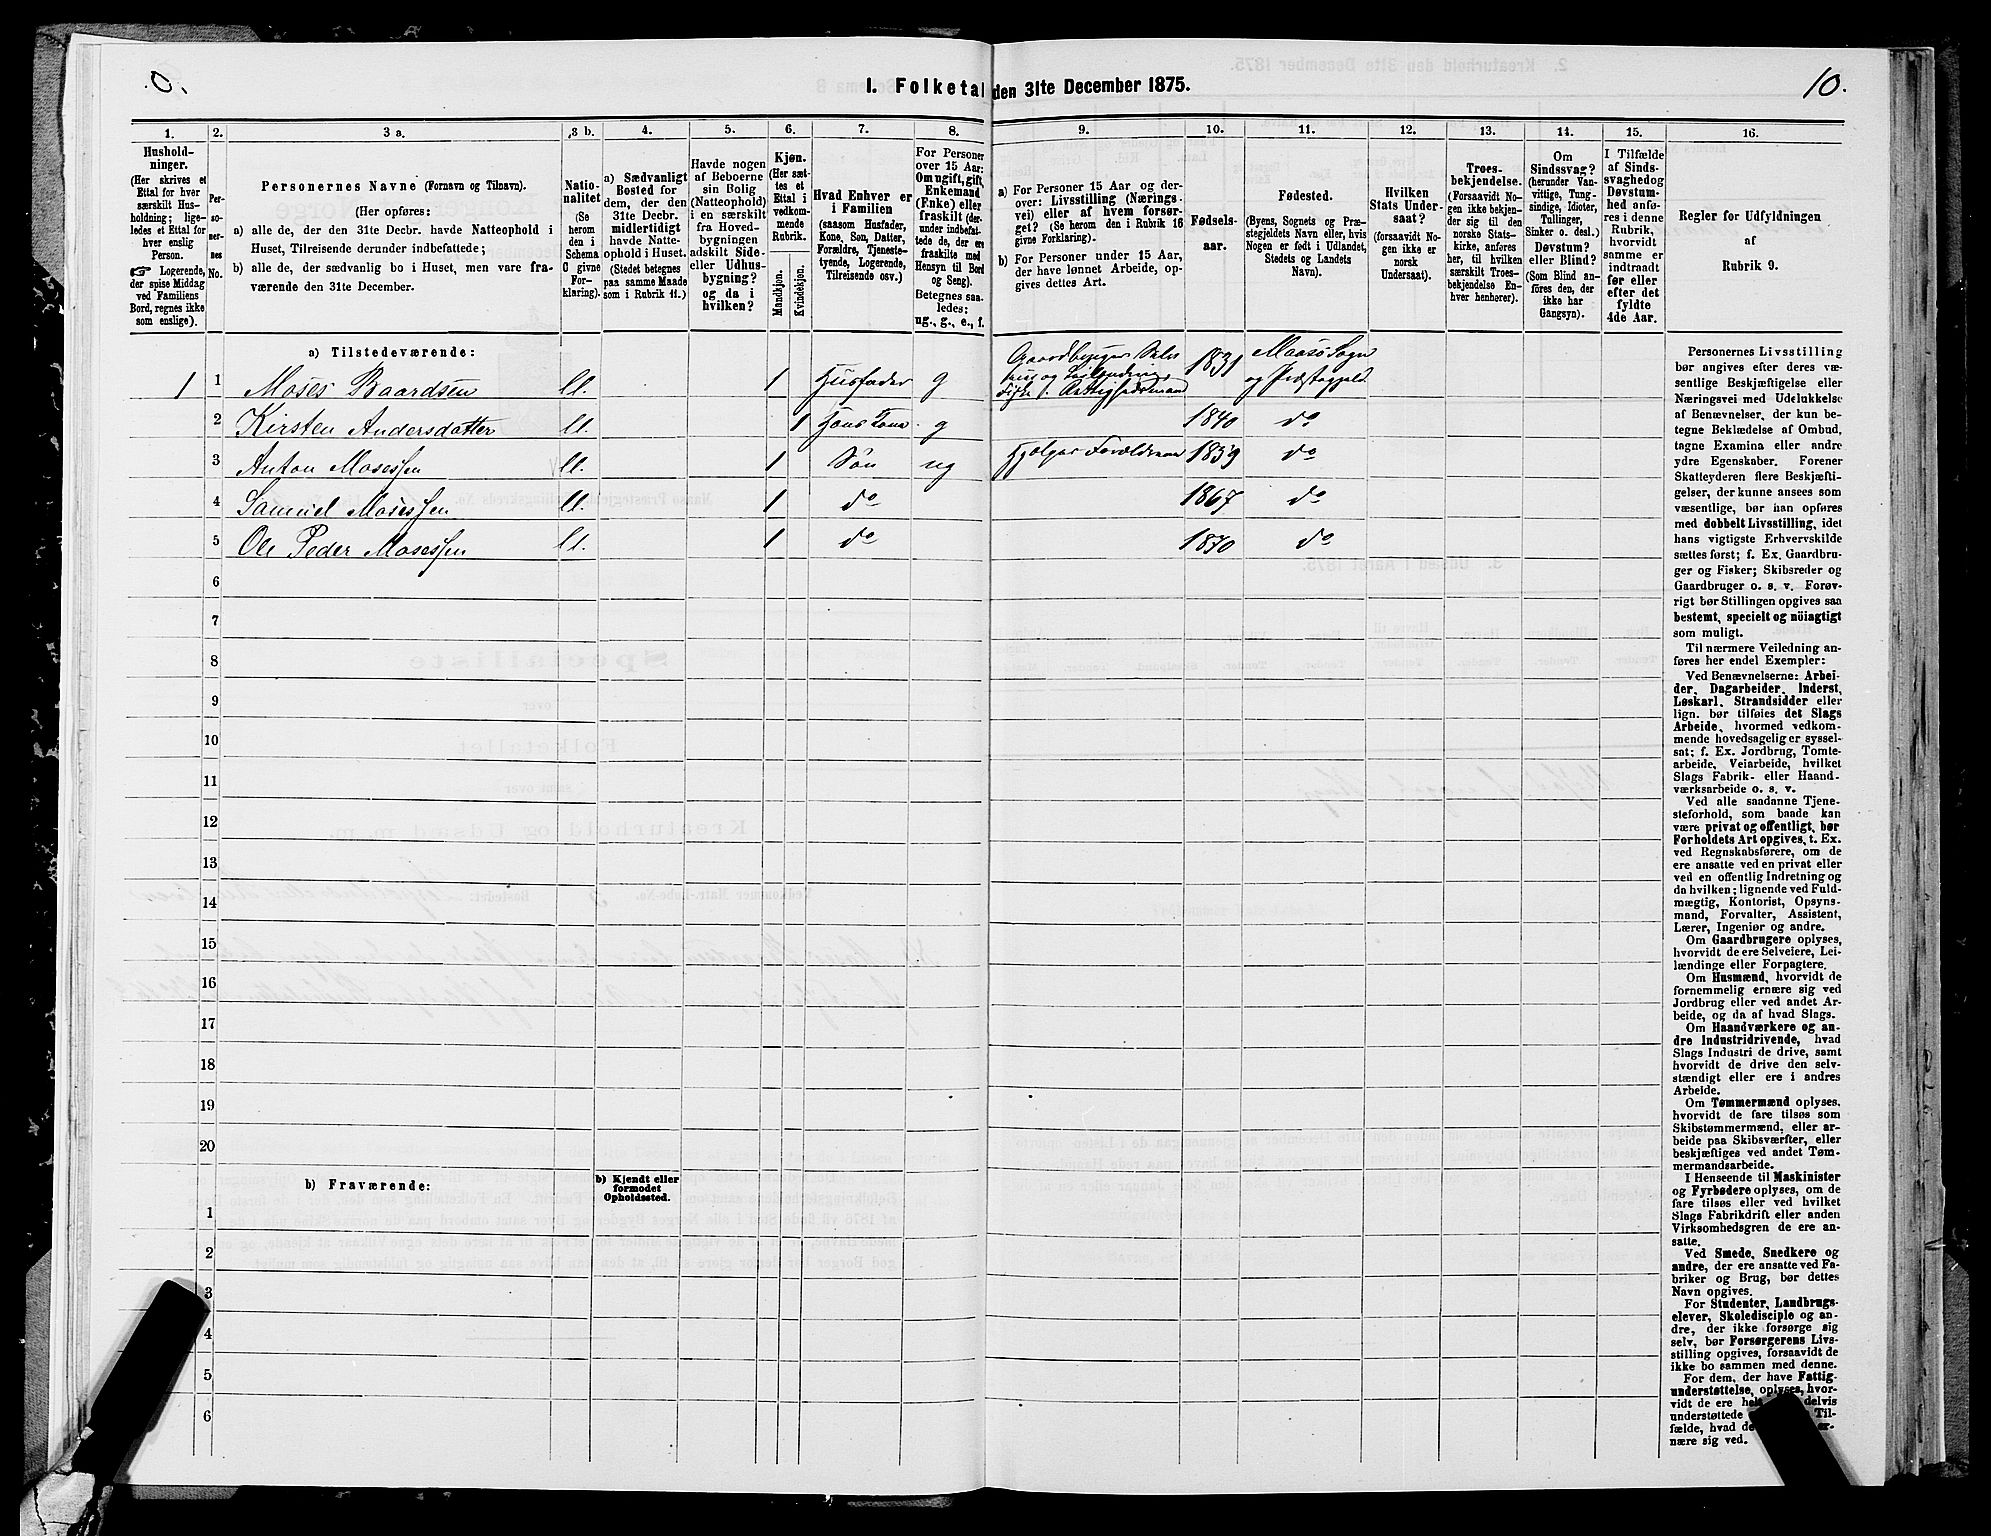 0.
I. Folketal den 31te December 1875.
10.
1. 2. 3 a. 3 b. 4. 5. 6. 7. 8. 9. 10. 11. 12. 13. 14. 15. 16.
Hushold-
ninger.
(Her skrives et
Ettal for hver
særskilt Hus-
holdning; lige-
ledes et Ettal for
hver enslig
Person.
☞ Logerende,
der spise Middag
ved Familiens
Bord, regnes ikke
som enslige).
Per-
so-
ner-
nes
No.
Personernes Navne (Fornavn og Tilnavn).
(Her opføres:
a) alle de, der den 31te Decbr. havde Natteophold i
Huset, Tilreisende derunder indbefattede;
b) alle de, der sædvanlig bo i Huset, men vare fra-
værende den 31te December.
Natio-
nalitet
(Se
herom
den i
Schema
C givne
For-
klaring).
a) Sædvanligt
Bosted for
dem, der den
31te Decbr.
midlertidigt
havde Natte-
ophold i Huset.
(Stedet betegnes
paa samme Maade
som i Rubrik 11.)
Havde nogen
af Beboerne
sin Bolig
(Natteophold)
i en særskilt
fra Hoved-
bygningen
adskilt Side-
eller Udhus-
bygning?
og da i
hvilken?
Kjøn.
(Her sæt-
tes et
Ettal i
vedkom-
mende
Rubrik.
Mandkjøn.
Kvindekjøn.
Hvad Enhver er
i Familien
(saasom Husfader,
Kone, Søn, Datter,
Forældre, Tjeneste-
tyende, Logerende,
Tilreisende osv.)
For Personer
over 15 Aar:
Om ugift, gift,
Enkemand
(Enke) eller
fraskilt (der-
under indbefat-
tede de, der ere
fraskilte med
Hensyn til Bord
og Seng).
Betegnes saa-
ledes:
ug., g., e., f.
a) For Personer 15 Aar og der-
over: Livsstilling (Nærings-
vei) eller af hvem forsør-
get (Se herom den i Rubrik 16
givne Forklaring).
b) For Personer under 15 Aar,
der have lønnet Arbeide, op-
gives dettes Art.
Fødsels-
aar.
Fødested.
(Byens, Sognets og Præ-
stegjeldets Navn eller, hvis
Nogen er født i Udlandet,
Stedets og Landets
Navn).
Hvilken
Stats Under-
saat?
(forsaavidt No-
gen ikke er
norsk
Undersaat).
Troes-
bekjendelse.
(Forsaavidt No-
gen ikke bekjen-
der sig til den
norske Stats-
kirke, anføres
her, til hvilken
særskilt Troes-
bekjendelse En-
hver henhører).
Om
Sindssvag?
(herunder Van-
vittige, Tung-
sindige, Idioter,
Tullinger,
Sinker o. desl.)
Døvstum?
eller Blind?
(Som Blind an-
føres den, der
ikke har
Gangsyn).
I Tilfælde
af Sinds-
svaghed og
Døvstum-
hed anfø-
res i denne
Rubrik,
hvorvidt
samme er
indtraadt
før eller
efter det
fyldte
4de Aar.
Regler for Udfyldningen
af
Rubrik 9.
a) Tilstedeværende:
1 1 Moses Baardsen ll. 1 Husfader g 1831 Maasø Sogn
og Præstegjeld.
2 Kirsten Andersdatter ll. 1 g 1840 do
3 Anton Mosessen ll. 1 Søn ug 1859 do
4 Samuel Mosessen ll. 1 do 1867 do
5 Ole Peder Mosessen ll. 1 do 1870 do
6
7
8
9
10
11
12
13
14
15
16
17
18
19
20
b) Fraværende:
b) Kjendt eller
formodet
Opholdssted.
1
2
3
4
5
6
Personernes Livsstilling
bør angives efter deres væ-
sentlige Beskjæftigelse eller
Næringsvei med Udelukkelse
af Benævnelser, der kun be-
tegne Beklædelse af Ombud,
tagne Examina eller andre
ydre Egenskaber. Forener
Skatteyderen flere Beskjæfti-
gelser, der kunne ansees som
væsentlige, bør han opføres
med dobbelt Livsstilling, idet
hans vigtigste Erhvervskilde
sættes først; f. Ex. Gaardbru-
ger og Fisker; Skibsreder og
Gaardbruger o. s. v. Forøv-
rigt bør Stillingen opgives saa
bestemt, specielt og nöiagtigt
som muligt.
Til nærmere Veiledning an-
føres her endel Exempler:
Ved Benævnelserne: Arbei-
der, Dagarbeider, Inderst,
Løskarl, Strandsidder eller
lign. bør tilføies det Slags
Arbeide, hvormed vedkom-
mende hovedsagelig er syssel-
sat; f. Ex. Jordbrug, Tomte-
arbeide, Veiarbeide, hvilket
Slags Fabrik- eller Haand-
værksarbeide o. s. v.
Ved alle saadanne Tjene-
steforhold, som baade kan
være privat og offentligt, bør
Forholdets Art opgives, t. Ex.
ved Regnskabsførere, om de
ere ansatte ved en privat eller
ved en offentlig Indretning og
da hvilken; lignende ved Fuld-
mægtig, Kontorist, Opsyns-
mand, Forvalter, Assistent,
Lærer, Ingeniør og andre.
Om Gaardbrugere oplyses,
hvorvidt de ere Selveiere, Lei-
lændinge eller Forpagtere.
Om Husmænd, hvorvidt de
fornemmelig ernære sig ved
Jordbrug eller ved andet Ar-
beide, og da af hvad Slags.
Om Haandværkere og an-
dre Industridrivende, hvad
Slags Industri de drive, samt
hvorvidt de drive den selv-
stændigt eller ere i andres
Arbeide.
Om Tømmermænd oplyses,
hvorvidt de fare tilsøs som
Skibstømmermænd, eller ar-
beide paa Skibsværfter, eller
beskjæftiges ved andet Tøm-
mermandsarbeide.
I Henseende til Maskinister
og Fyrbødere oplyses, om de
fare tilsøs eller ved hvilket
Slags Fabrikdrift eller anden
Virksomhedsgren de ere an-
satte.
Ved Smede, Snedkere og
andre, der ere ansatte ved Fa-
briker og Brug, bør dettes
Navn opgives.
For Studenter, Landbrugs-
elever, Skoledisciple og an-
dre, der ikke forsørge sig
selv, bør Forsørgerens Livs-
stilling opgives, forsaavidt de
ikke bo sammen med denne.
For dem, der have Fattig-
understøttelse, oplyses, hvor-
vidt de ere delvis
understøttede Til-
fælde, hvad de er-
nære sig ved.